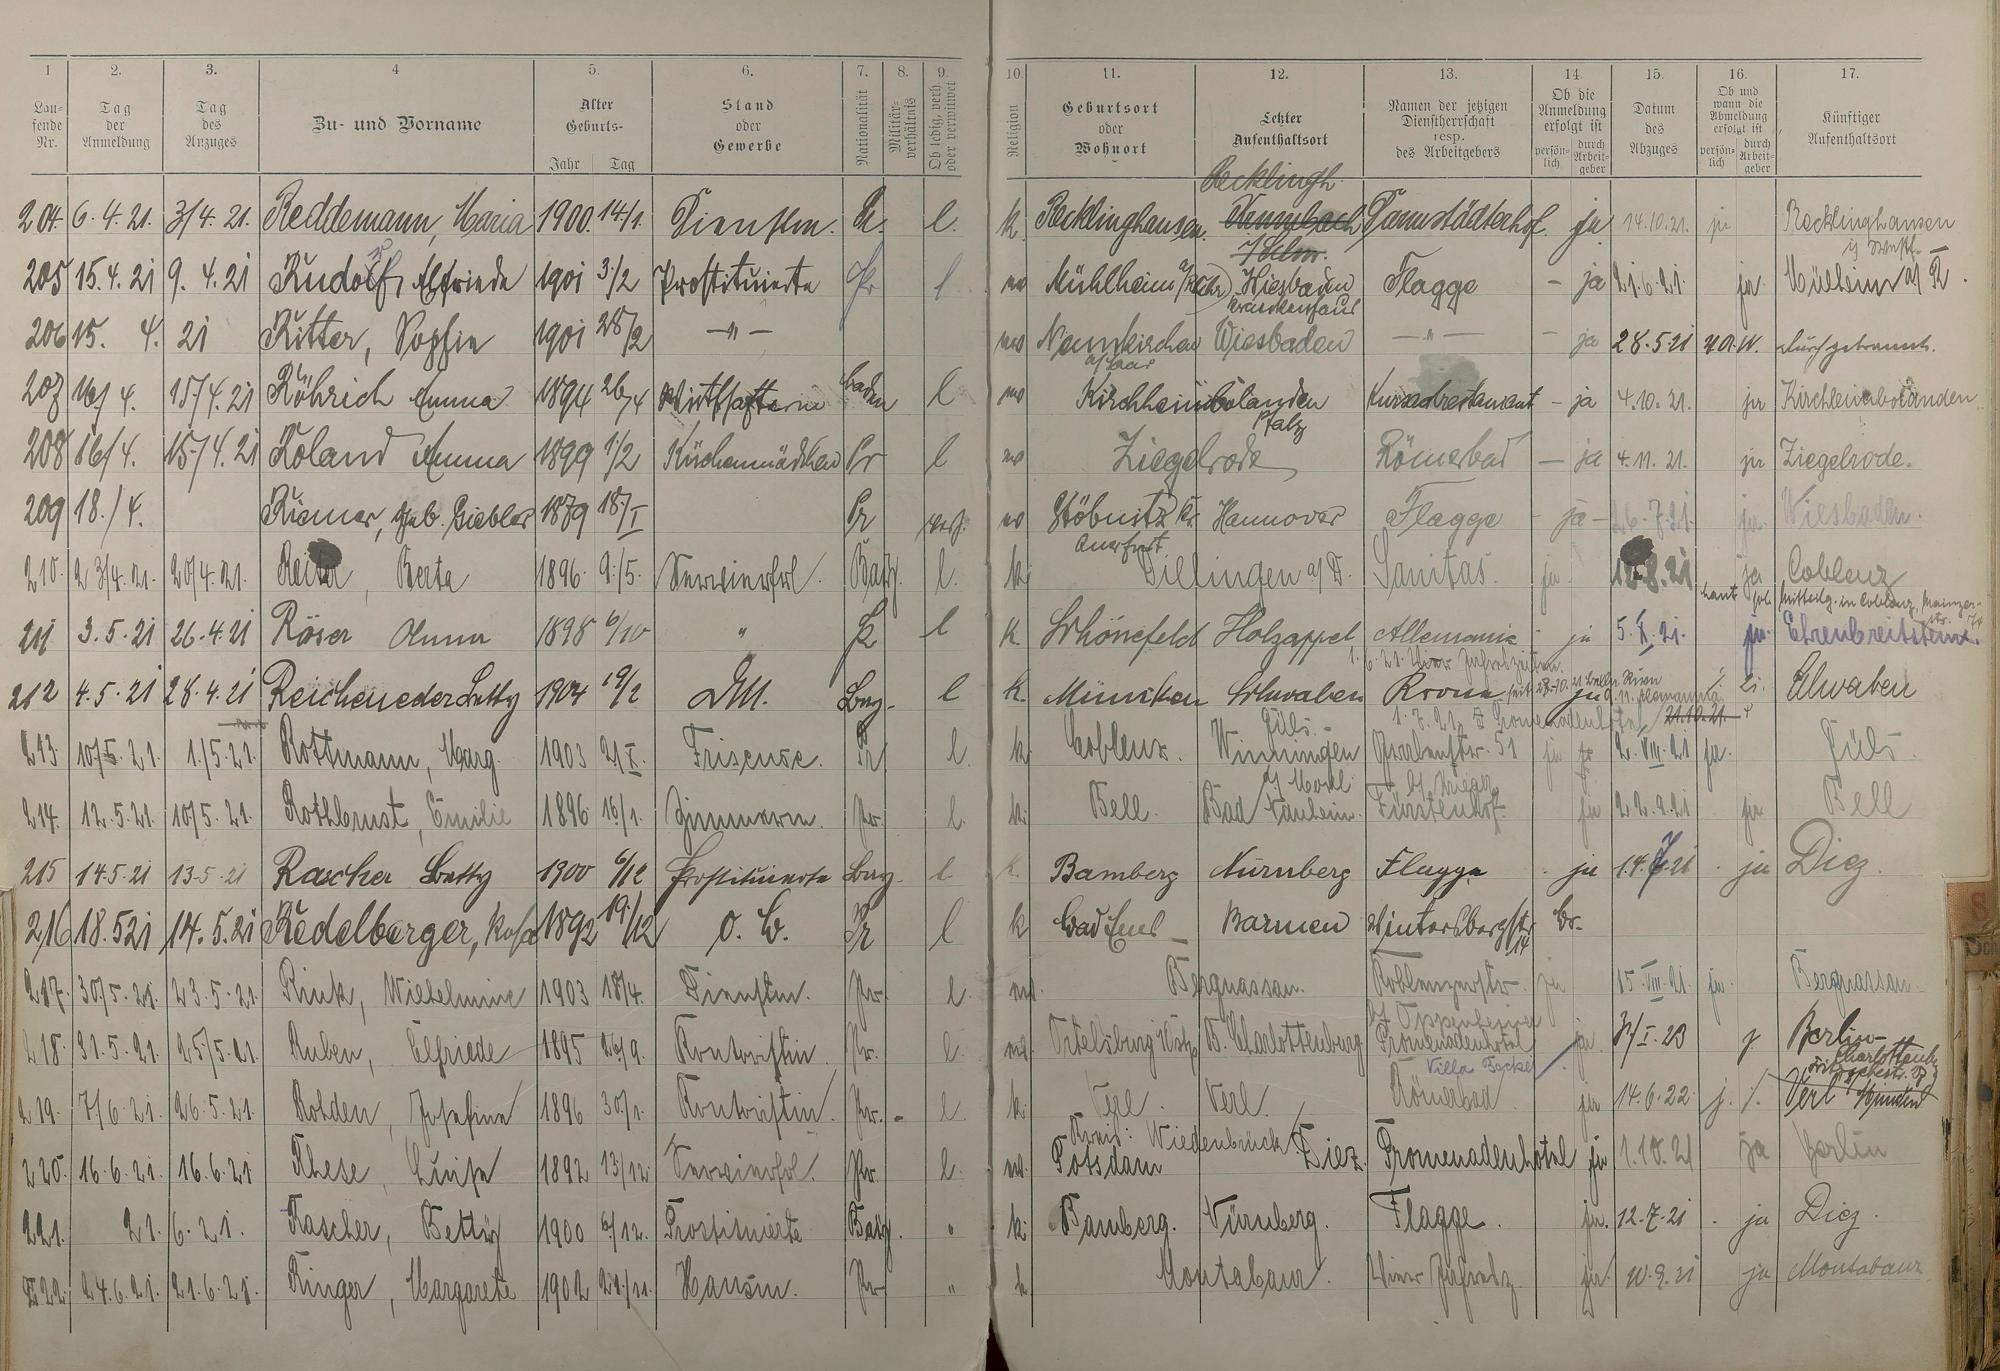 1 2. 3. 4 5. 6. 7. 8. 9. 10. 11. 12. 13. 14. 15. 16. 17.
Lau-fende Nr. Tag der Anmeldung Tag des Anzuges Zu- und Vorname Alter Geburts- Jahr Tag Stand oder Gewerbe Nationalität Militär-verhältnis Ob ledig, verh. oder verwitwet Religion Geburtsort oder Wohnort Letzter Aufenthaltsort Namen der jetzigen Dienstherrschaft resp. des Arbeitgebers Ob die Anmeldung erfolgt ist persön-lich durch Arbeit-geber Datum des Abzuges Ob und wann die Abmeldung erfolgt ist persön-lich durch Arbeit-geber Künftiger Aufenthaltsort
Recklingh.
204. 6.4.21. 3/4.21. Reddemann, Maria 1900. 14/1. Dienstm. l. k. Recklinghausen. Darmstädterhof. ja 14.10.21. ja Recklinghausen
i/ Westf.
205 15.4.21 9.4.21 Rudolf, Elfriede 1901 3/2 Prostituierte Pr l Mühlheim a/Ruhr Wiesbaden Flagge - ja 21.6.21. ja Mülheim a/R.
Krankenhaus
206 15. 4. 21 Ritter, Sophie 1901 28/2 -"- Neunkirchen Wiesbaden -"- - ja 28.5.21 durchgebrannt.
a/Saar
207 16/4. 15/4.21 Röhrich Emma 1894 26/4 Wirtschafterin Baden l Kirchheimbolanden Kursaalrestaurant - ja 4.10.21. ja Kirchheimbolanden
Pfalz
208 16/4. 15/4.21 Roland Emma 1899 1/2 Küchenmädchen Pr l Ziegelrode Römerbad - ja 4.11.21. ja Ziegelrode.
209 18./4. Riemer, geb. Giebler 1879 18/I Pr verh. Stöbnitz Kr. Hannover Flagge - ja - 26.7.21. ja Wiesbaden.
Querfurt
210. 23/4.21. 20/4.21. Reiter, Berta 1896. 9./5. Servierfrl. Bay. l. k. Dillingen a/D. Sanitas. ja 21 ja Coblenz
laut Mitteilg. in Coblenz, Mainzer-
211 3.5.21 26.4.21 Röser Anna 1898 6/10 " l k Schönefeld Holzappel Allemania - ja 5.X.21. ja. Ehrenbreitstein.
212 4.5.21 28.4.21 Reicheneder Betty 1904 19/2 DM. Bay. l k. München Schwaben Krone ja Schwaben
Güls. 1.7.21. Promenadenhotel 21.10.21
213. 10/5.21. 1/5.21. Rottmann, Marg. 1903 21/X. Friseuse. Pr l. k. Coblenz. Winningen Grabenstr. 51 ja 2.VIII.21 ja. Güls.
a/Mosel
214. 12.5.21. 10/5.21. Rothbrust, Emilie 1896 16/1. Zimmerm. Pr. l. k. Bell. Bad Nauheim. Fürstenhof. ja 22.9.21 ja Bell
215 14.5.21 13.5.21 Rascher Betty 1900 6/12 Prostituierte Bay. l k. Bamberg Nürnberg Flagge - ja 14.7.21 - ja Diez.
216 18.5.21 14.5.21 Redelberger, Rosa 1892 19./12 o. B. Pr l k Bad Ems - Barmen Wintersbergstr. 14
217. 30/5.21. 23.5.21. Rink, Wilhelmine 1903 18/4. Dienstm. Pr. l. Bergnassau. Koblenzerstr. ja 15.VIII.21. ja. Bergnassau.
b/ Oppenheimer
218. 31.5.21. 25/5.21. Ruben, Elfriede 1895 26/9. Kontoristin Pr. l. Ortelsburg B. Charlottenburg Promenadenhotel ja. 31/I.23 j. Berlin-
Villa Becker Charlottenbg
219. 7/6.21. 26.5.21. Rohden, Josefine 1896 30/1. Kontoristin. Pr. - l. k. Verl. Verl. Römerbad. ja 14.6.22. j. Verl
Kreis: Wiedenbrück
220. 16.6.21. 16.6.21 Rhese, Luise 1892 13/12. Servierfrl. Pr. l. Potsdam Diez Promenadenhotel ja 1.10.21 ja Berlin
221. 21. 6.21. Rascher, Betty 1900 6/12. Prostituierte Bay. " k. Bamberg. Nürnberg. Flagge. ja. 12.7.21 - ja Diez.
222. 24.6.21. 21.6.21. Ringer, Margarete 1902 21/11. Hausm. Pr " k. Montabaur. ja. 10.9.21 ja Montabaur